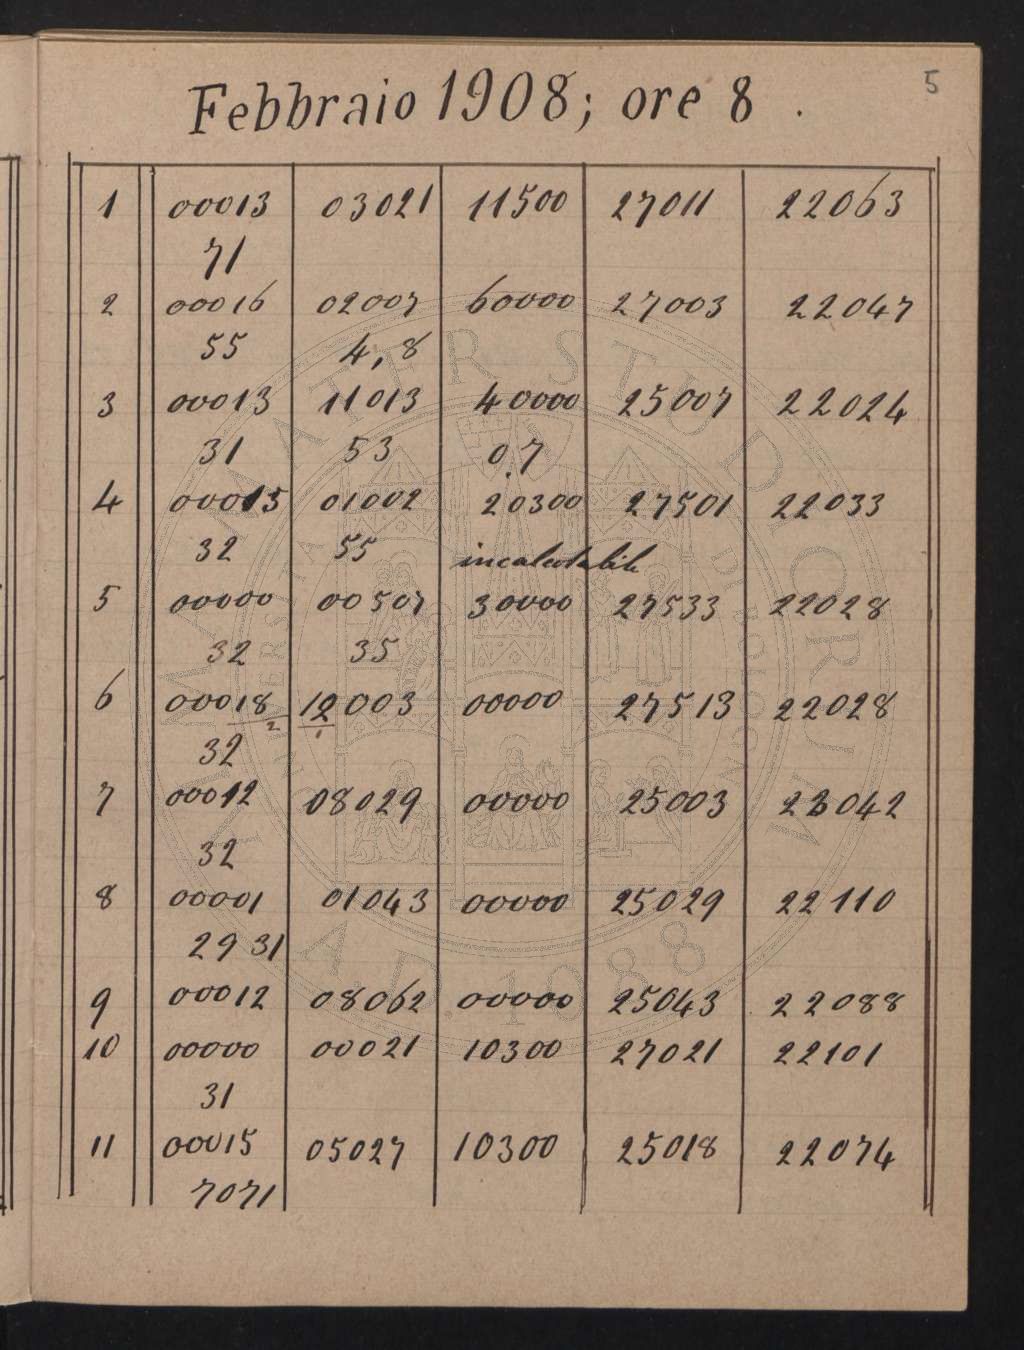 5
Febbraio 1908; ore 8.
1 00013 03021 11500 27011 22063
71
2 00016 02007 60000 27003 22047
55 4,8
3 00013 11013 40000 25007 22024
31 53 0,7
4 00015 01002 20300 27501 22033
32 55 incalcolabile
5 00000 00507 30000 27533 22028
32 35
6 00018 12003 00000 27513 22028
2 1
32
7 00012 08029 00000 25003 22042
32
8 00001 01043 00000 25029 22110
29 31
9 00012 08062 00000 25043 22088
10 00000 00021 10300 27021 22101
31
11 00015 05027 10300 25018 22074
7071
ALMA MATER STUDIORUM
A.D. 1088